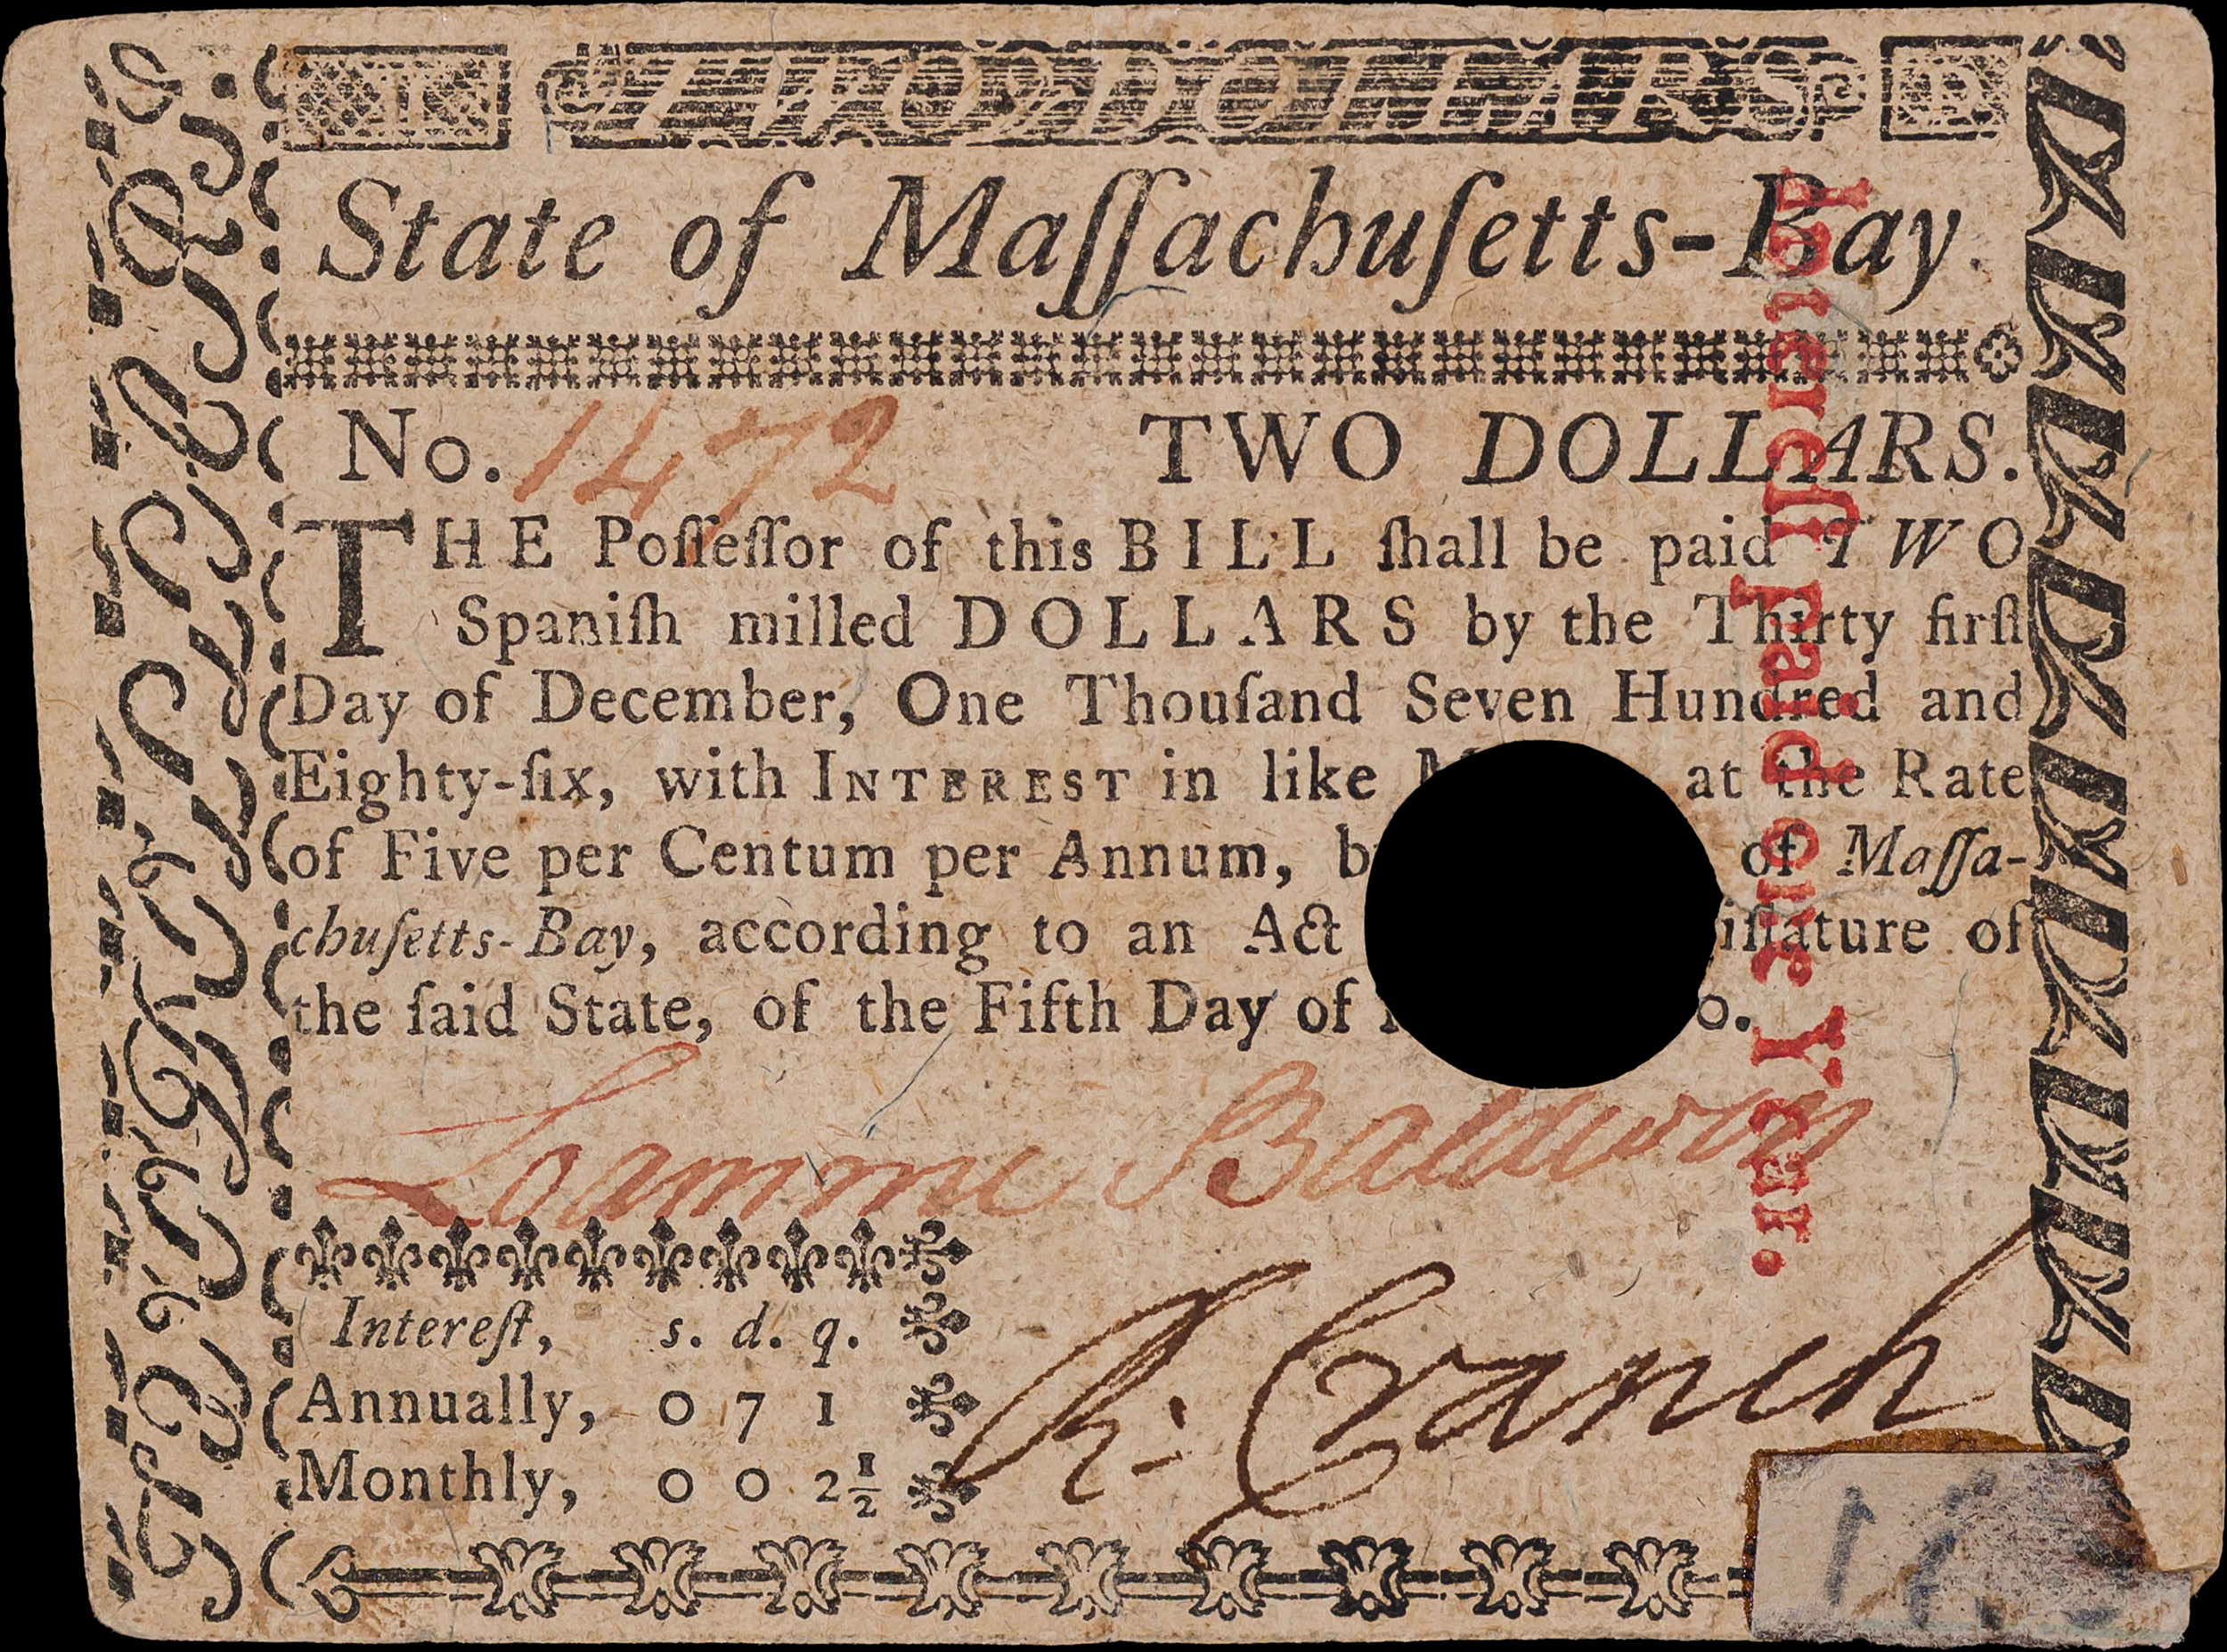 TWO DOLLARS
State of Maſſachuſetts-Bay.
No. 1472 TWO DOLLARS.
THE Poſſeſſor of this BILL ſhall be paid TWO
Spaniſh milled DOLLARS by the Thirty firſt
Day of December, One Thouſand Seven Hundred and
Eighty-ſix, with INTEREST in like at the Rate
of Five per Centum per Annum, of Maſſa-
chuſetts-Bay, according to an Act iſlature of
the ſaid State, of the Fifth Day of o.
Loammi Baldwin
R. Cranch
Intereſt, s. d. q.
Annually, 0 7 1
Monthly, 0 0 2½
Intereſt paid one Year.